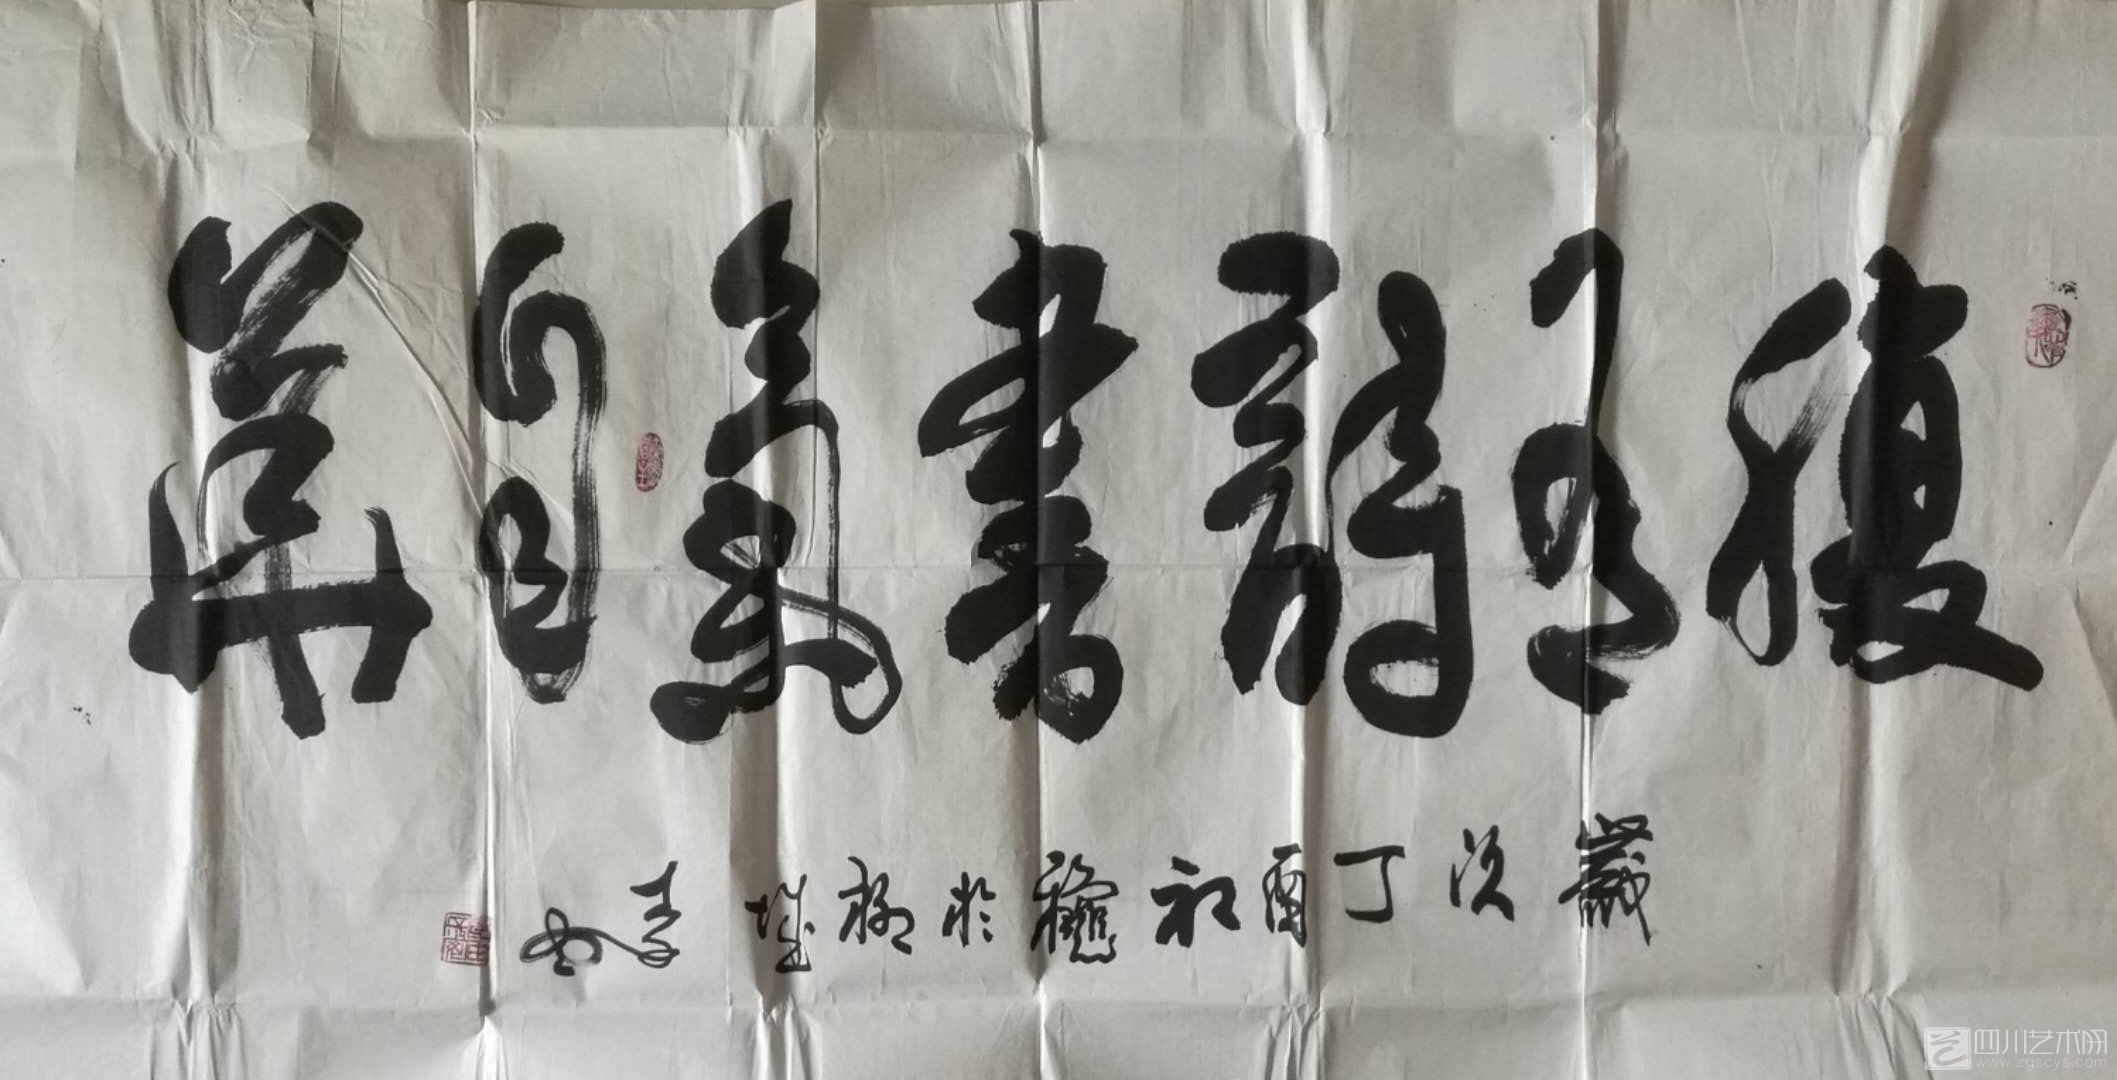 腹有詩書氣自華
歲次丁酉初龝於柳城李
四川艺术网
www.zgscys.com